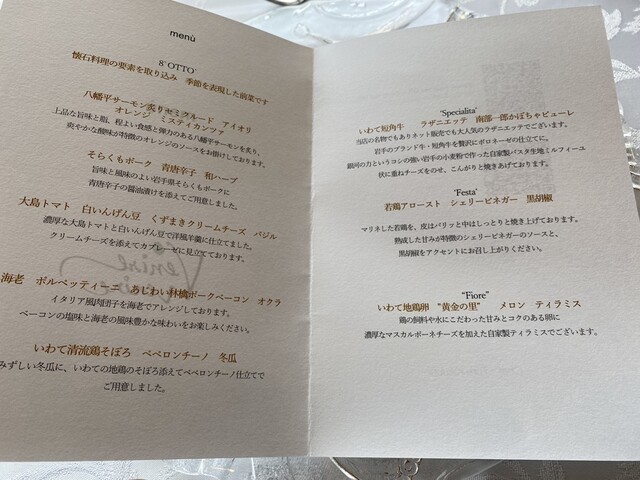 menù
8° OTTO°
懐石料理の要素を取り込み 季節を表現した前菜です
八幡平サーモン炙りセミクルード アイオリ
オレンジ ミスティカンツァ
上品な旨味と脂、程よい食感と弾力のある八幡平サーモンを炙り、
爽やかな酸味が特徴のオレンジのソースをお掛けしております。
そらくもポーク 青唐辛子 和ハーブ
旨味と風味のよい岩手県そらくもポークに
青唐辛子の醤油漬けを添えてご用意しました。
大島トマト 白いんげん豆 くずまきクリームチーズ バジル
濃厚な大島トマトと白いんげん豆で洋風羊羹に仕立てました。
クリームチーズを添えてカプレーゼに見立てております。
海老 ポルペッティーニ あじわい林檎ポークベーコン オクラ
イタリア風肉団子を海老でアレンジしております。
ベーコンの塩味と海老の風味豊かな味わいをお楽しみください。
いわて清流鶏そぼろ ペペロンチーノ 冬瓜
みずしい冬瓜に、いわての地鶏のそぼろ添えてペペロンチーノ仕立てで
ご用意しました。
"Specialita"
いわて短角牛 ラザニエッテ 南部一郎かぼちゃピューレ
当店の名物でもありネット販売でも大人気のラザニエッテでございます。
岩手のブランド牛・短角牛を贅沢にボロネーゼの仕立てに、
銀河の力というコシの強い岩手の小麦粉で作った自家製パスタ生地ミルフィーユ
状に重ねチーズをのせ、こんがりと焼きあげております。
"Festa"
若鶏アロースト シェリービネガー 黒胡椒
マリネした若鶏を、皮はパリッと中はしっとりと焼き上げております。
熟成した甘みが特徴のシェリービネガーのソースと、
黒胡椒をアクセントにお召し上がりください。
"Fiore"
いわて地鶏卵 "黄金の里" メロン ティラミス
鶏の飼料や水にこだわった甘みとコクのある卵に
濃厚なマスカルポーネチーズを加えた自家製ティラミスでございます。